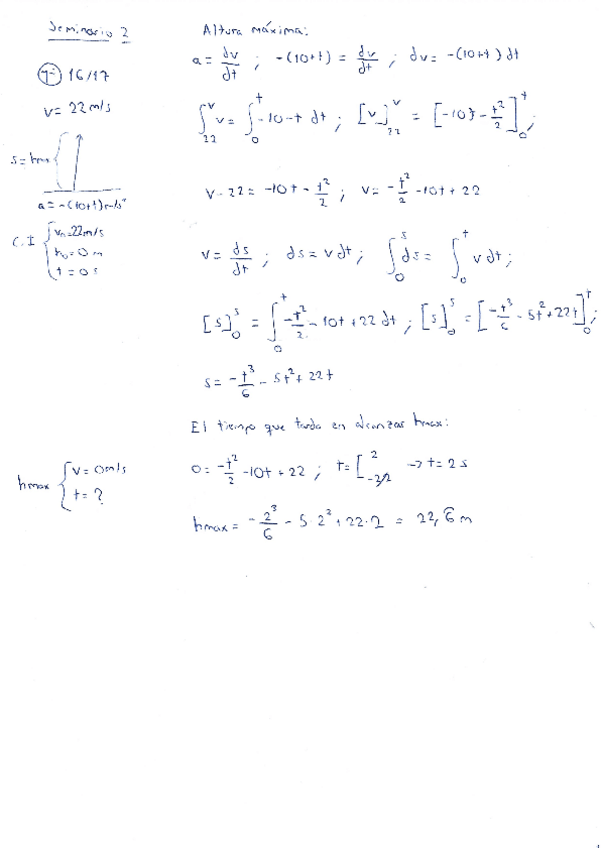 Seminario 2
7- 16/17
v = 22 m/s
s = hmax
a = -(10+t) m/s²
C.I { v₀ = 22 m/s
h₀ = 0 m
t = 0 s
Altura máxima:
a = dv/dt ; -(10+t) = dv/dt ; dv = -(10+t) dt
∫₂₂ᵛ v = ∫₀ᵗ -10 - t dt ; [v]₂₂ᵛ = [-10t - t²/2]₀ᵗ ;
v - 22 = -10t - t²/2 ; v = -t²/2 - 10t + 22
v = ds/dt ; ds = v dt ; ∫₀ˢ ds = ∫₀ᵗ v dt ;
[s]₀ˢ = ∫₀ᵗ -t²/2 - 10t + 22 dt ; [s]₀ˢ = [-t³/6 - 5t² + 22t]₀ᵗ ;
s = -t³/6 - 5t² + 22t
El tiempo que tarda en alcanzar hmax:
hmax { v = 0 m/s
t = ?
0 = -t²/2 - 10t + 22 ; t = [ 2 -22 → t = 2 s
hmax = -2³/6 - 5·2² + 22·2 = 22,6 m